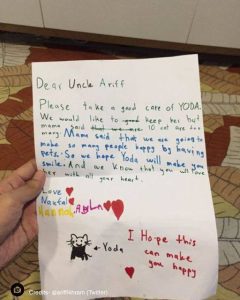 Dear Uncle Ariff
Please take a good care of YODA.
We would like to good keep her but
mama said that we are 10 cat are too
many. Mama said that we are going to
make so many people happy by having
pets. So we hope Yoda will make you
smile. And we know that you will love
her with all your heart.
Love
Naufal
Hannah, Aisha
← Yoda
I Hope this
can make
you happy
Credits: @ariffikhram (Twitter)